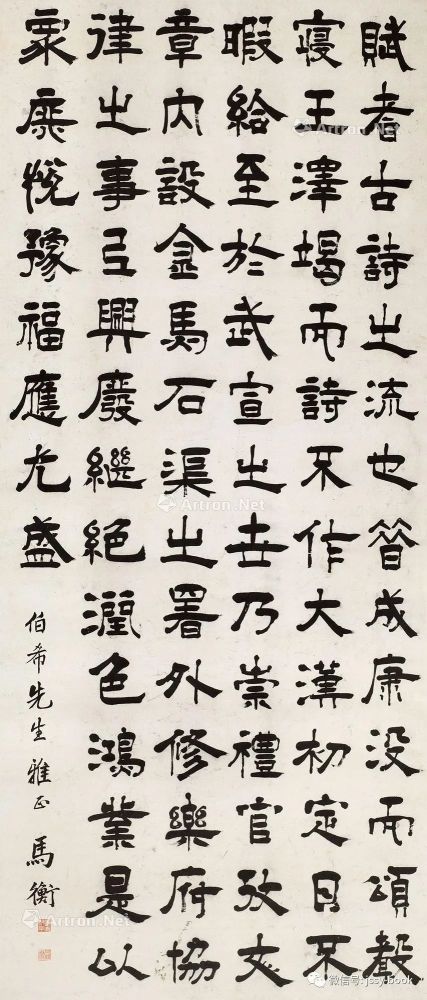 賦者古詩之流也昔成康没而頌聲
寑王澤竭而詩不作大漢初定日不
暇給至於武宣之世乃崇禮官攷文
章内設金馬石渠之署外修樂府協
律之事㠯興廢繼絕潤色鴻業是以
衆庶悅豫福應尤盛
伯希先生雅正 馬衡
Artron.Net
Artron.Net
Artron.Net
微信号: jssy-book